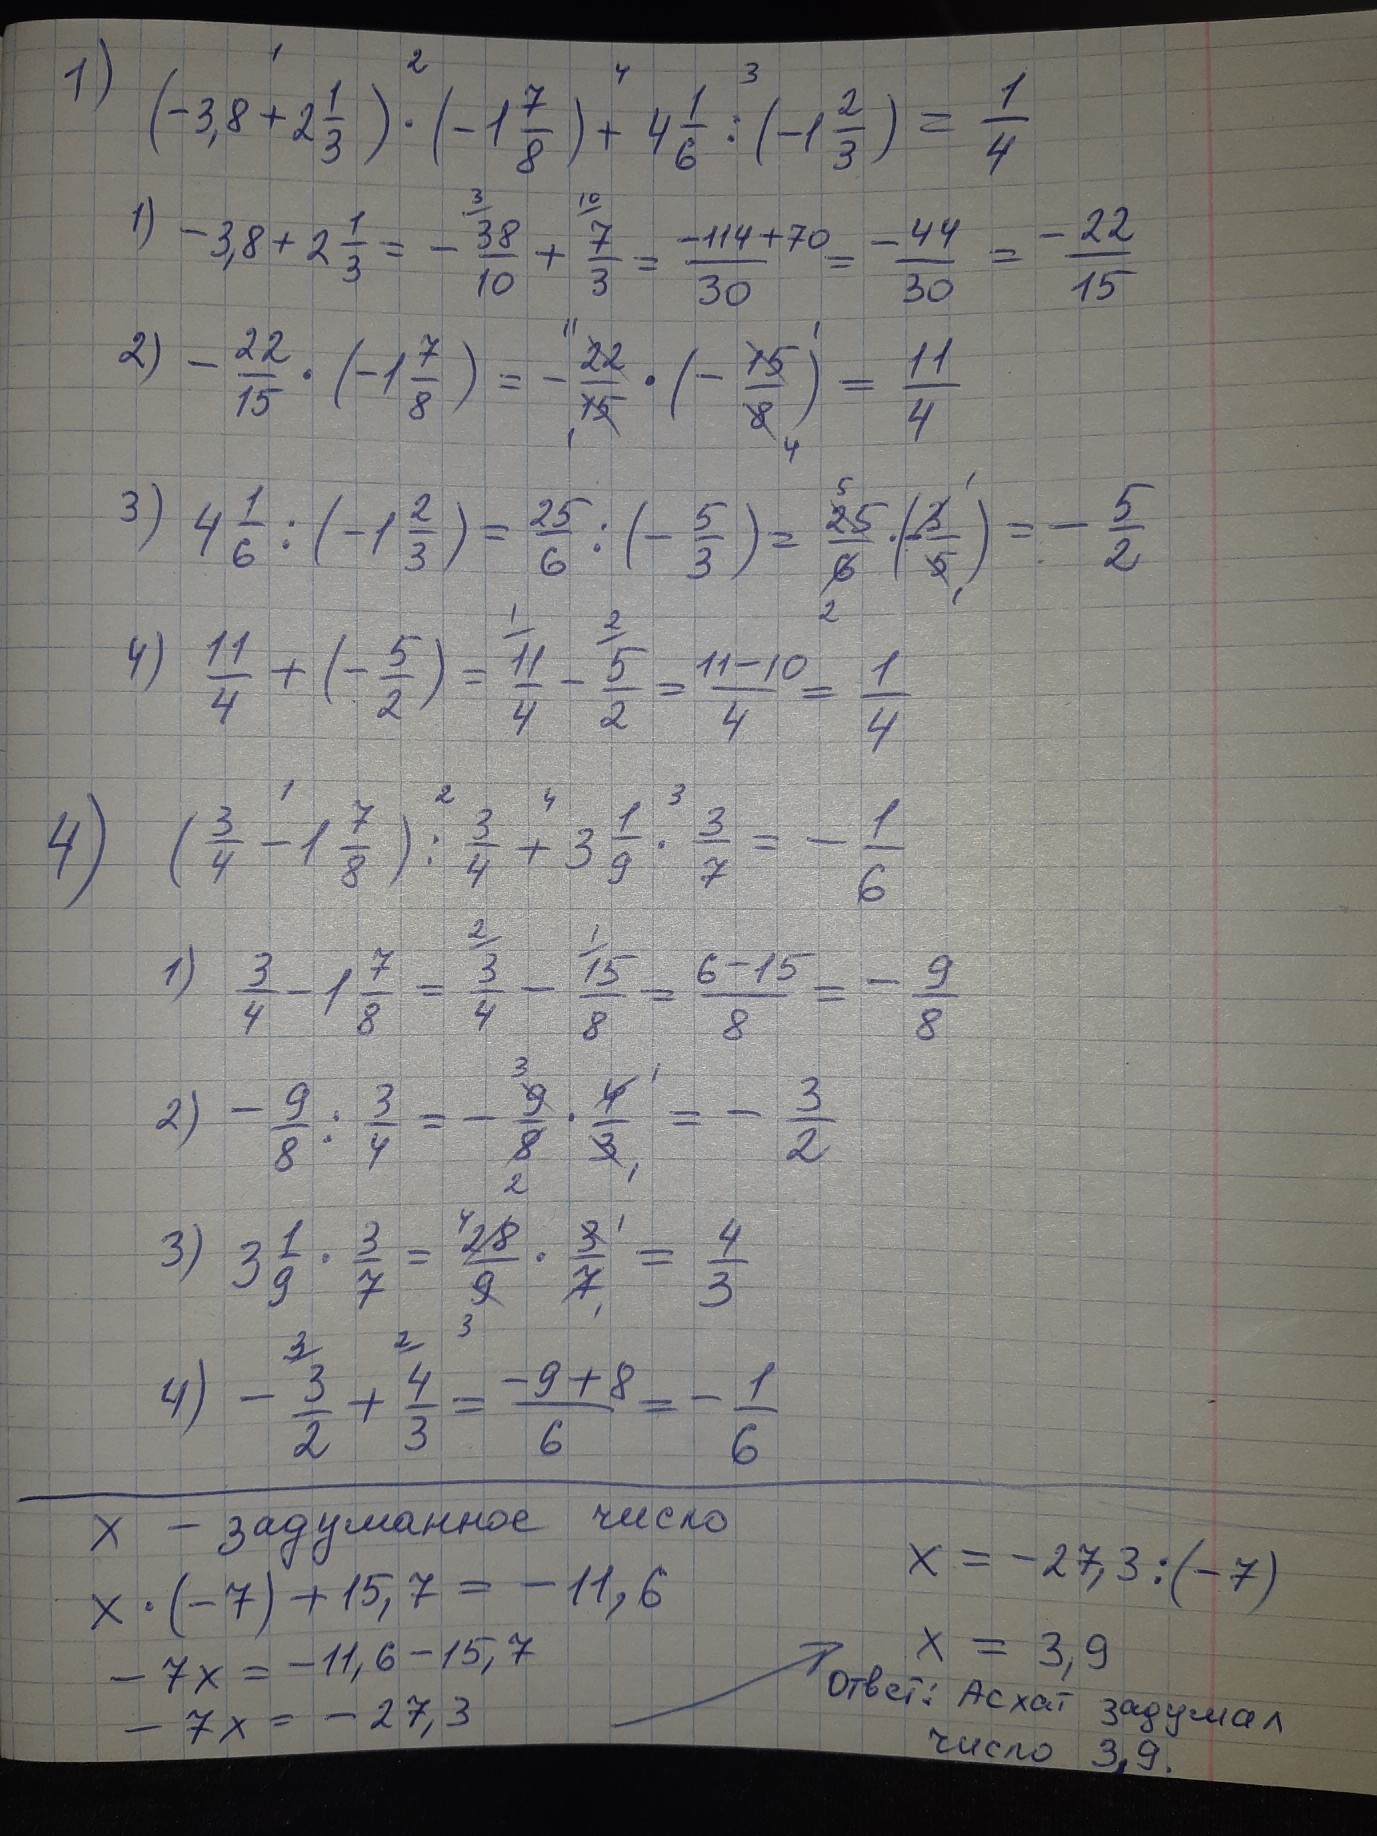 1) (-3,8 + 2 1/3) · (-1 7/8) + 4 1/6 : (-1 2/3) = 1/4
1) -3,8 + 2 1/3 = - 38/10 + 7/3 = (-114+70)/30 = -44/30 = -22/15
2) - 22/15 · (-1 7/8) = - 22/15 · (- 15/8) = 11/4
3) 4 1/6 : (-1 2/3) = 25/6 : (- 5/3) = 25/6 · (- 3/5) = - 5/2
4) 11/4 + (- 5/2) = 11/4 - 5/2 = (11-10)/4 = 1/4
4) (3/4 - 1 7/8) : 3/4 + 3 1/9 · 3/7 = - 1/6
1) 3/4 - 1 7/8 = 3/4 - 15/8 = (6-15)/8 = - 9/8
2) - 9/8 : 3/4 = - 9/8 · 4/3 = - 3/2
3) 3 1/9 · 3/7 = 28/9 · 3/7 = 4/3
4) - 3/2 + 4/3 = (-9+8)/6 = - 1/6
x - задуманное число
x · (-7) + 15,7 = -11,6
-7x = -11,6 - 15,7
-7x = -27,3
x = -27,3 : (-7)
x = 3,9
Ответ: Асхат задумал
число 3,9.